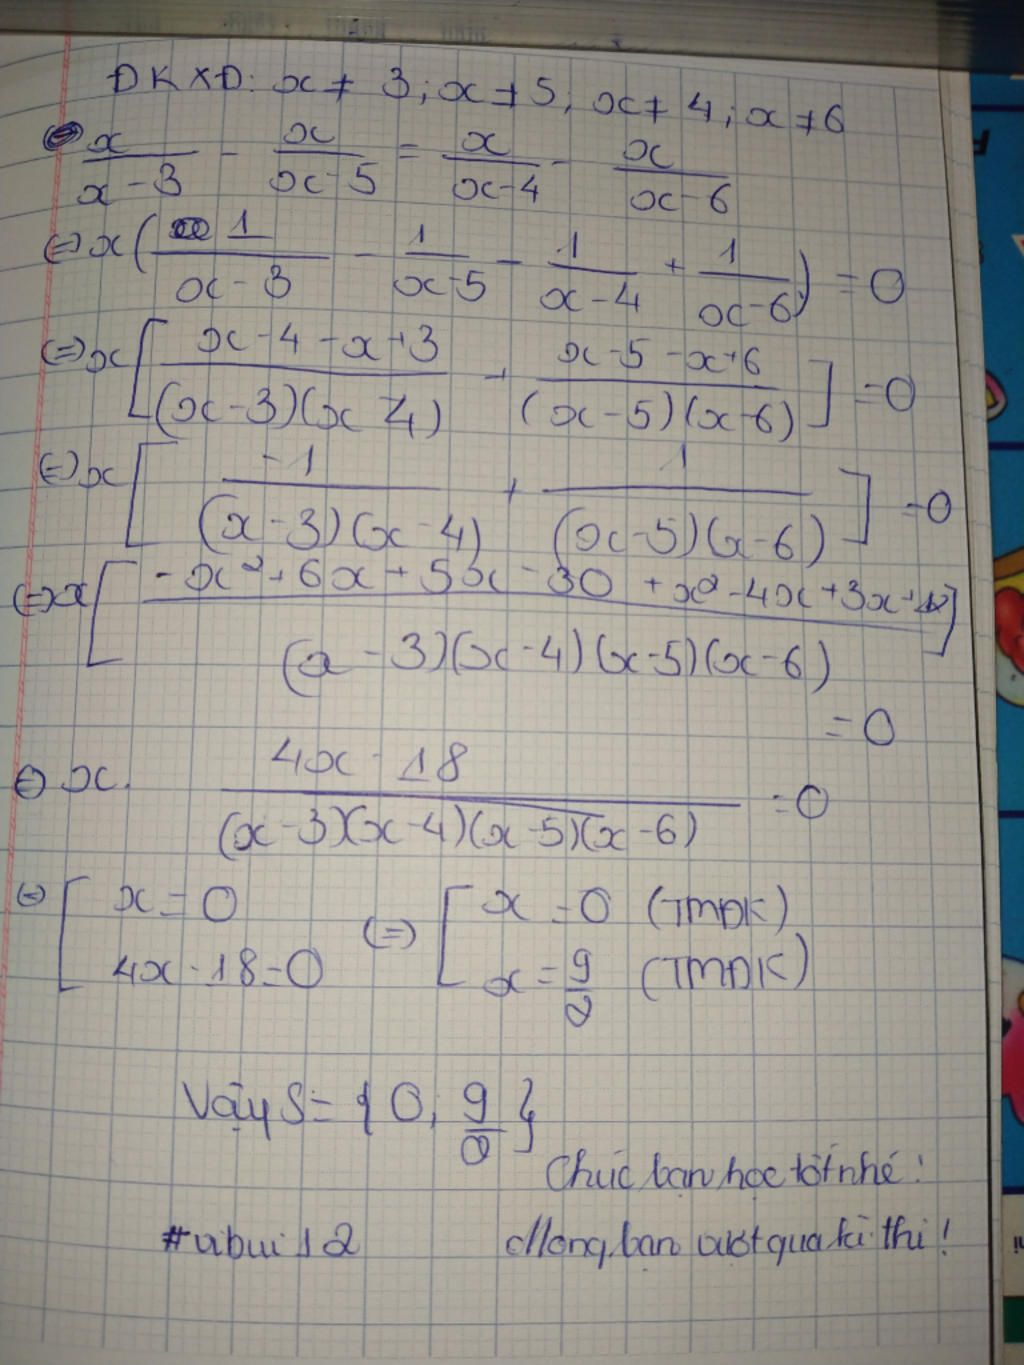 ĐKXĐ: x ≠ 3; x ≠ 5; x ≠ 4; x ≠ 6
x/(x-3) - x/(x-5) = x/(x-4) - x/(x-6)
(=) x(1/(x-3) - 1/(x-5) - 1/(x-4) + 1/(x-6)) = 0
(=) x[(x-4-x+3)/((x-3)(x-4)) + (x-5-x+6)/((x-5)(x-6))] = 0
(=) x[-1/((x-3)(x-4)) + 1/((x-5)(x-6))] = 0
(=) x[(-x²+6x+5x-30+x²-4x+3x+12)/((x-3)(x-4)(x-5)(x-6))]
= 0
(=) x. (4x-18)/((x-3)(x-4)(x-5)(x-6)) = 0
(=) [x = 0 (=) [x = 0 (TMĐK)
4x-18=0 x = 9/2 (TMĐK)
Vậy S = {0; 9/2}
Chúc bạn học tốt nhé!
#vibui12 Mong bạn vượt qua kì thi!